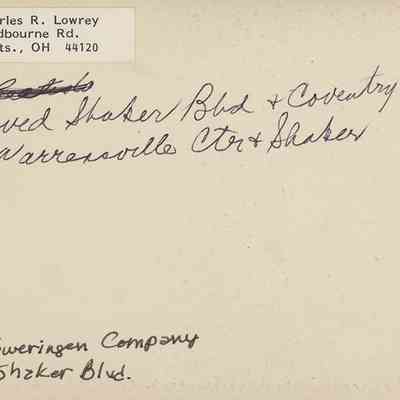 rles R. Lowrey
dbourne Rd.
ts., OH 44120
ved Shaker Blvd + Coventry
Warrensville Ctr + Shaker
weringen Company
Shaker Blvd.